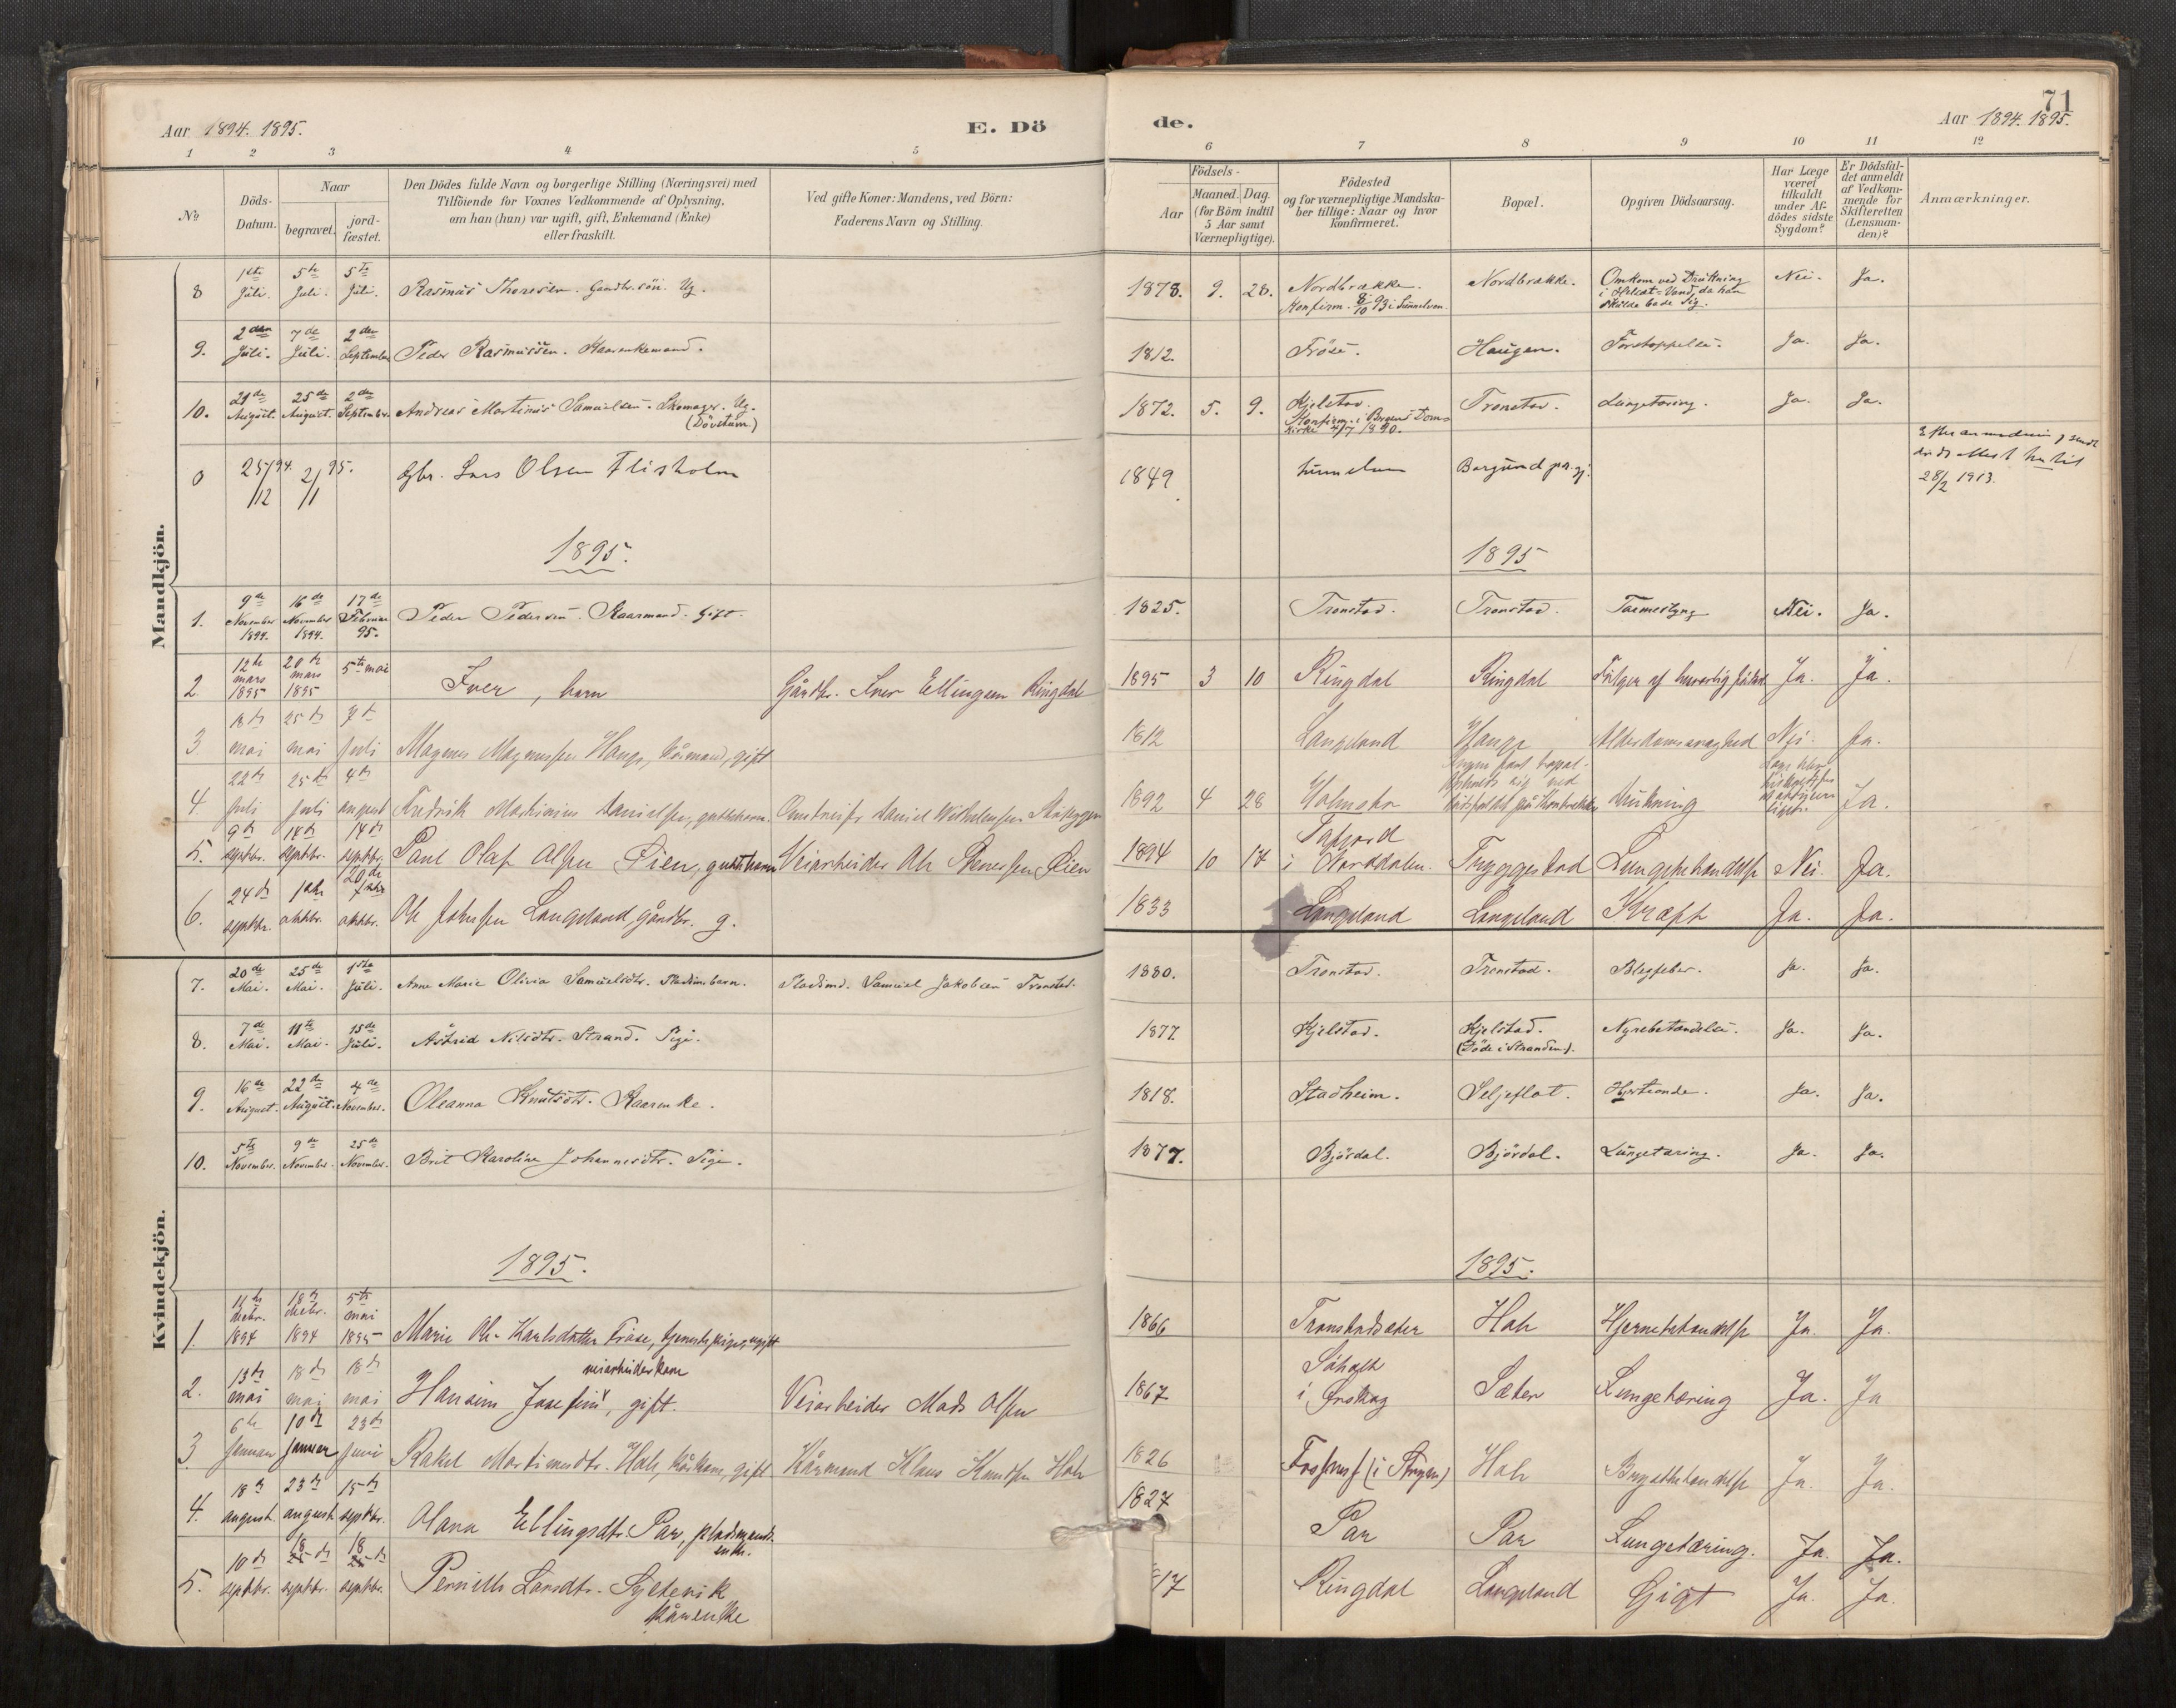 Aar 1894. 1895.
E. Dö
de.
Aar 1894. 1895.
71
1 2 3 4 5 6 7 8 9 10 11 12
№
Döds-Datum.
Naar
begravet.
jordfæstet.
Den Dödes fulde Navn og borgerlige Stilling (Næringsvei) med
Tilföiende for Voxnes Vedkommende af Oplysning,
om han (hun) var ugift, gift, Enkemand (Enke)
eller fraskilt.
Ved gifte Koner: Mandens, ved Börn:
Faderens Navn og Stilling.
Födsels-
Aar
Maaned. Dag.
(for Börn indtil
5 Aar samt
Værnepligtige).
Födested
og for værnepligtige Mandska-
ber tillige: Naar og hvor
konfirmeret.
Bopæl.
Opgiven Dödsaarsag.
Har Læge
været
tilkaldt
under Af-
dödes sidste
Sygdom?
Er Dödsfal-
det anmeldt
af Vedkom-
mende for
Skifteretten
(Lensman-
den)?
Anmærkninger.
Mandkjön.
8 1ste Juli. 5te Juli. 5te Juli. Rasmus Thoresen. Gaardbr.sön. Ug. 1878. 9. 28. Nordbrække. Konfirm. 8/10 93 i Sunnelven. Nordbrække. Omkom ved Drukning i Vand, da han skulde bade sig. Nei. Ja.
9. 2den Juli. 7de Juli. 2den September Peder Rasmussen. Kaarenkemand. 1812. Fröse. Haugen. Forstoppelse. Ja. Ja.
10. 21de August. 25de August. 2den September. Andreas Martinus Samuelsen. Skomager. Ug. (Dövstum) 1872. 5. 9. Kjelstad. Konfirm. i Bergens Domkirke 4/7 1890. Tronstad. Lungetæring. Ja. Ja.
0 25/12 94. 2/1 95. Gbr. Lars Olsen Flisholm 1849. Borgund pr.gj. 28/2 1913.
1895. 1895
1. 9de November 1894. 16de November 1894. 17de Februar 95. Peder Pedersen. Kaarmand. Gift. 1825. Tronstad. Tronstad. Nei. Ja.
2. 12te mars 1895 20de mars 1895 5te mai Iver, barn Gårdbr. Iver Ellingsen Ringdal 1895 3 10 Ringdal Ringdal Fölger af födsel Ja. Ja.
3 18de mai 25de mai 7de juli Magnus Magnussen Hauge, kårmand, gift 1812 Langeland Hauge Alderdomssvaghed Nei. Ja.
4. 22de juli 25de juli 4de august Fredrik Martinius Danielsen, guttebarn. Daniel Vilhelmsen 1892 4 28 Drukning Ja.
5. 9de septbr. 14de septbr. 14de septbr. Paul Olaf Olsen Öien, guttebarn Veiarbeider Ole Öien 1894 10 17 Tafjord i Norddalen. Tryggestad Lungebetændelse Nei. Ja.
6. 24de septbr. 1ste oktbr. 20de oktbr. Ole Johnsen Langeland, gårdbr. g. 1833 Langeland Langeland Kræft Ja. Ja.
Kvindekjön.
7. 20de Mai. 25de Mai. 1ste Juli. Anne Marie Olivia Samuelsdtr. Pladsmbarn. Pladsmd. Samuel Jakobsen Tronstad. 1880. Tronstad. Tronstad. Ja. Ja.
8. 7de Mai. 11te Mai. 15de Juli. Astrid Nilsdtr. Strand. Pige. 1877. Kjelstad. Kjelstad. (Döde i Stranden). Nyrebetændelse. Ja. Ja.
9. 16de August. 22de August. 4de November. Oleanna Knutsdtr. Kaarenke. 1818. Stadheim. Seljeflot. Hjerteonde. Ja. Ja.
10. 5te November. 9de November. 25de November. Brit Karoline Johannesdtr. Pige. 1877. Björdal. Björdal. Lungetæring. Ja. Ja.
1895. 1895.
1. 14de decbr. 1894 18de decbr. 1894 5te mai 1895 Marie Ole-Karlsdatter Fröse, tjenestepige, ugift 1866 Tronstadsæter Hole Hjernebetændelse Ja. Ja.
2. 13de mai 18de mai 18de mai Hansine Josefine, veiarbeiderkone gift. Veiarbeider Mads Olsen 1867 Söholt i Ørskog Sæter Lungetæring Ja. Ja
3 6te januar 10de januar 23de juni Rakel Martinusdtr. Hole, kårkone, gift Kårmand Klaus Knudsen Hole 1826 (i Stryn) Hole Brystbetændelse Ja. Ja.
4. 18de august. 23de august 15de septbr. Olava Ellingsdtr. Par, pladsmands enke. 1827 Par Par Lungetæring. Ja. Ja.
5. 10de septbr. 18 septbr. 18 septbr. Pernille Larsdtr. Syltevik kårenke 17 Ringdal Langeland Gigt Ja. Ja.